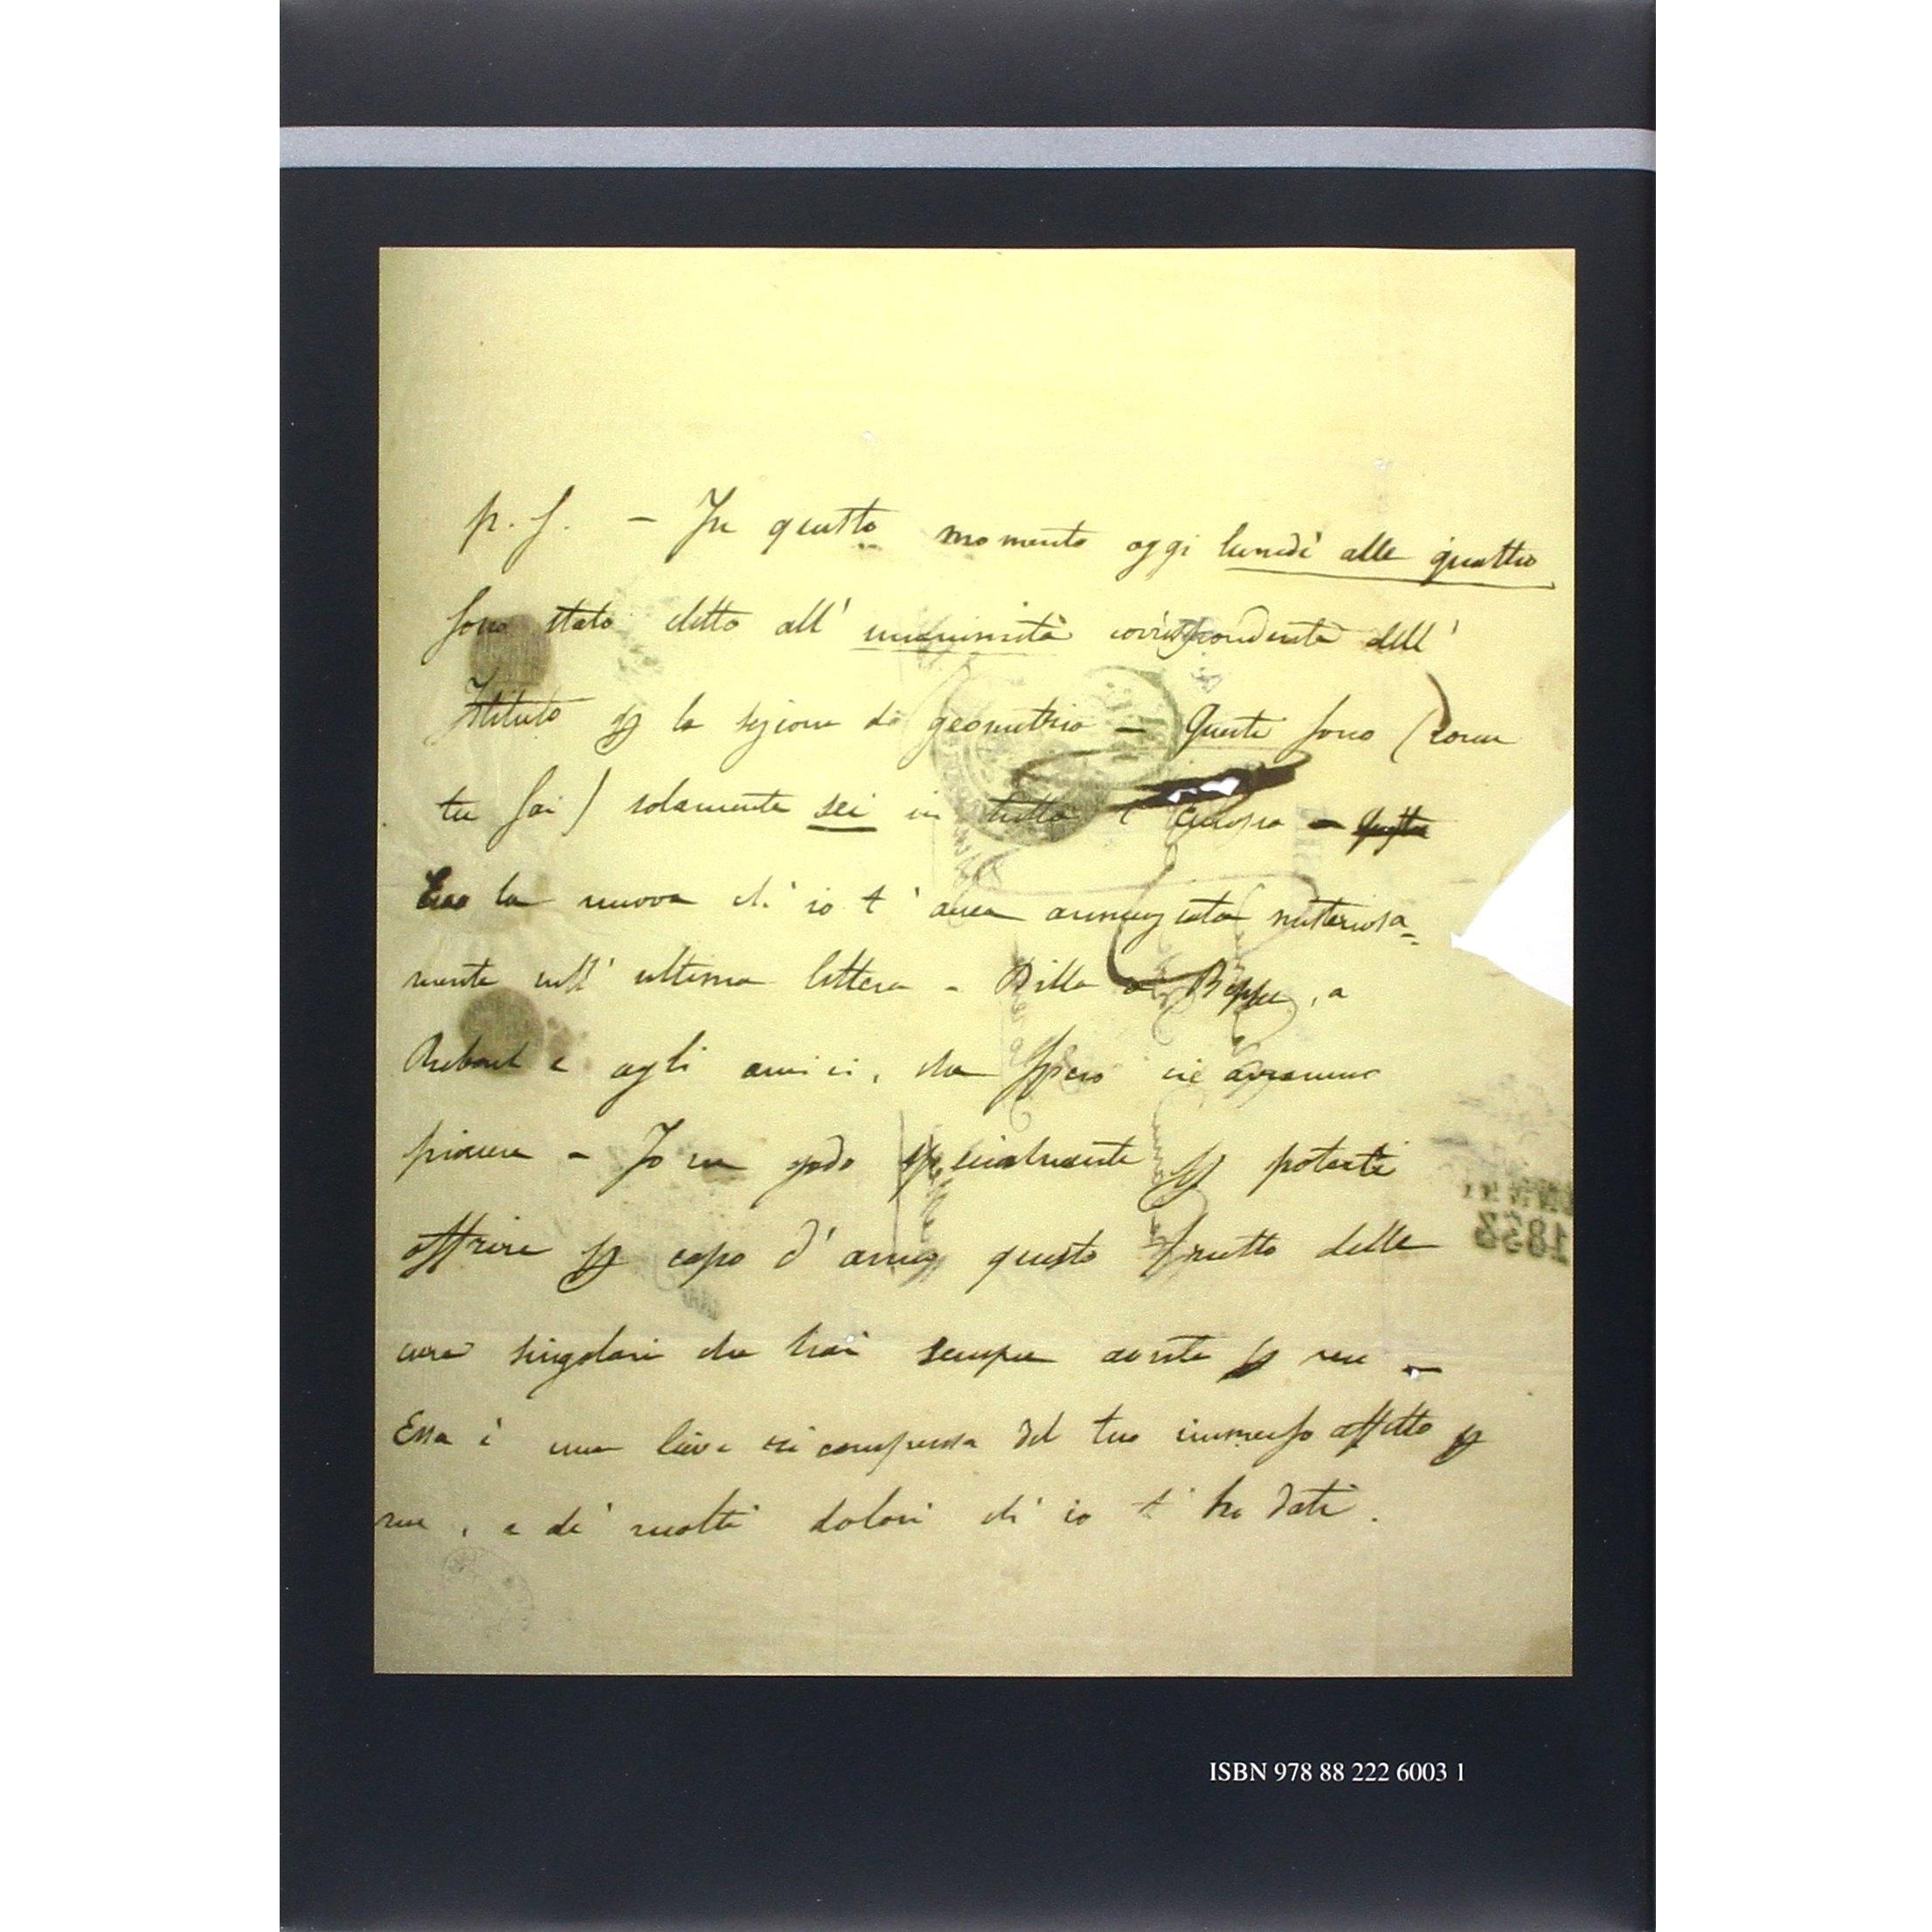 p. S. – In questo momento oggi lunedì alle quattro
sono stato eletto all' unanimità corrispondente dell'
Istituto la sezione di geometria – Questi sono (come
tu sai) solamente sei in tutta l' Europa –
Ecco la nuova ch' io t' avea annunziata misteriosa-
mente nell' ultima lettera – Dilla a Beppe, a
e agli amici, che spero ne avranno
piacere – Io ne godo specialmente poterti
offrire capo d' anno questo frutto delle
cure singolari che hai sempre avute me –
Essa è una lieve ricompensa del tuo immenso affetto
me, e di molti dolori ch' io t' ho dati.
1832
ISBN 978 88 222 6003 1